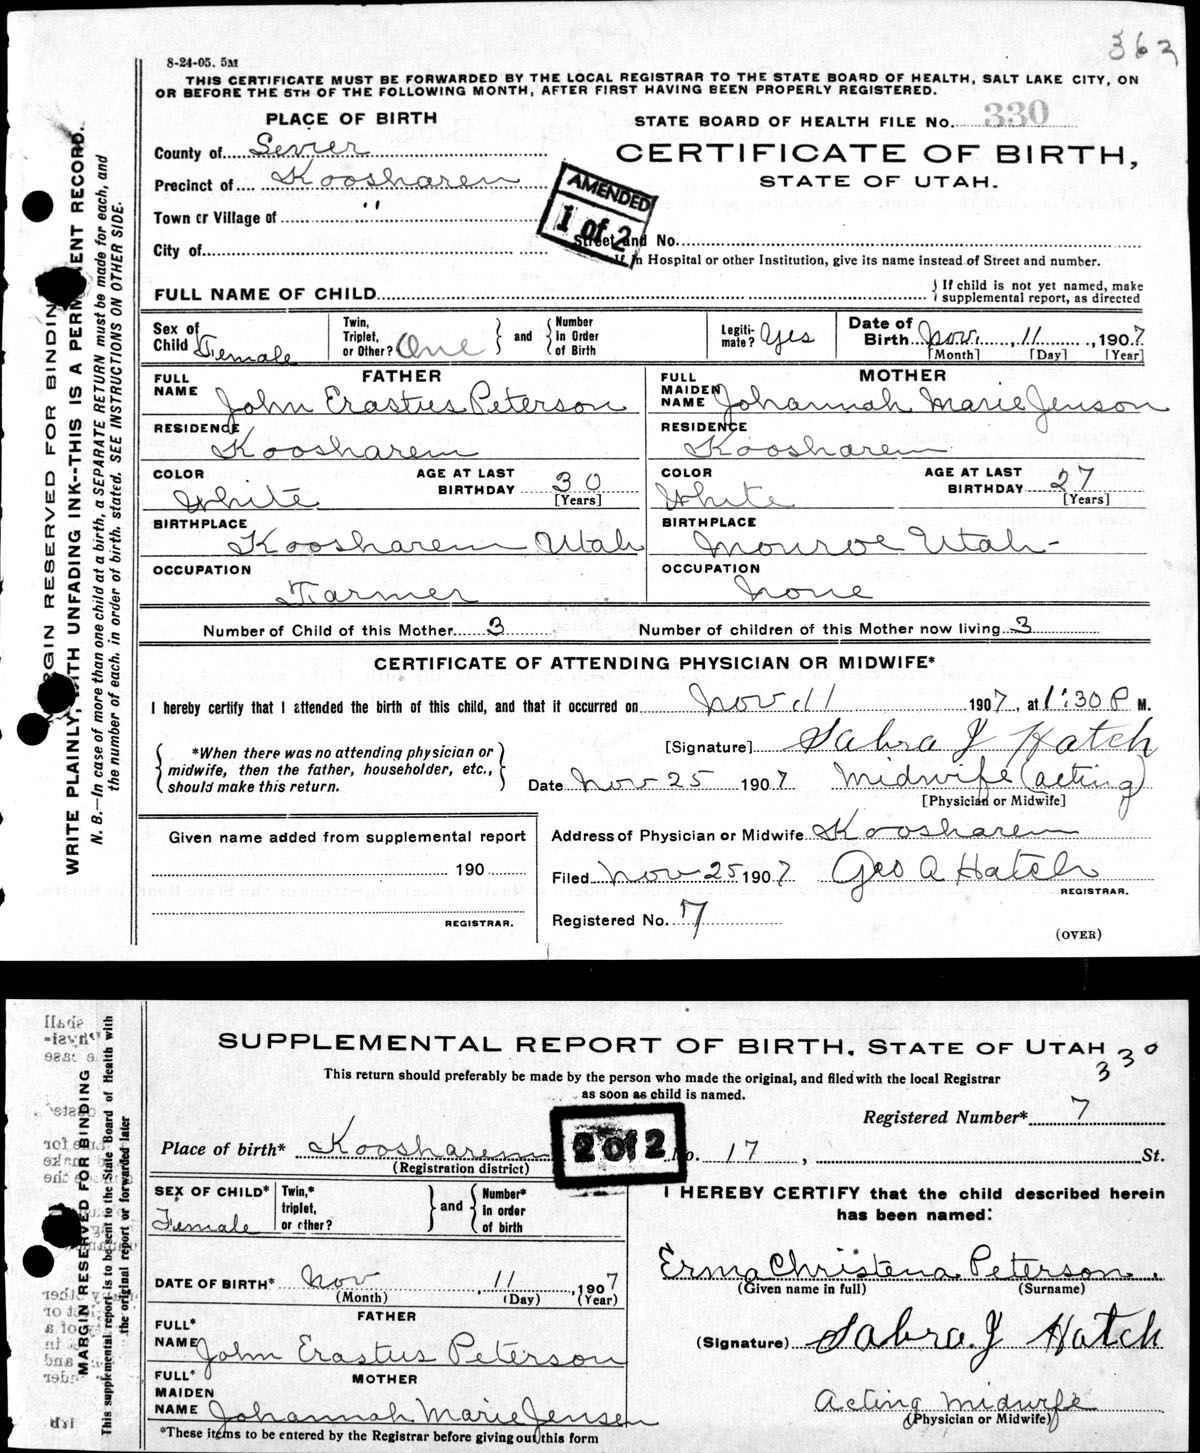 362
8-24-05. 5M
THIS CERTIFICATE MUST BE FORWARDED BY THE LOCAL REGISTRAR TO THE STATE BOARD OF HEALTH, SALT LAKE CITY, ON
OR BEFORE THE 5TH OF THE FOLLOWING MONTH, AFTER FIRST HAVING BEEN PROPERLY REGISTERED.
PLACE OF BIRTH
STATE BOARD OF HEALTH FILE No. 330
County of Sevier
CERTIFICATE OF BIRTH,
STATE OF UTAH.
Precinct of Koosharem
AMENDED
1 of 2
Town or Village of "
City of
Street and No.
If in Hospital or other Institution, give its name instead of Street and number.
FULL NAME OF CHILD
If child is not yet named, make
supplemental report, as directed
Sex of Child Female
Twin, Triplet, or Other? One
and
Number in Order of Birth
Legiti-mate? Yes
Date of Birth Nov. 11, 1907
[Month] [Day] [Year]
FATHER
FULL NAME John Erastus Peterson
MOTHER
FULL MAIDEN NAME Johannah Marie Jenson
RESIDENCE Koosharem
RESIDENCE Koosharem
COLOR White
AGE AT LAST BIRTHDAY 30
[Years]
COLOR White
AGE AT LAST BIRTHDAY 27
[Years]
BIRTHPLACE Koosharem Utah
BIRTHPLACE Monroe Utah-
OCCUPATION Farmer
OCCUPATION None
Number of Child of this Mother 3
Number of children of this Mother now living 3
CERTIFICATE OF ATTENDING PHYSICIAN OR MIDWIFE*
I hereby certify that I attended the birth of this child, and that it occurred on Nov. 11 1907, at 1:30 P M.
*When there was no attending physician or
midwife, then the father, householder, etc.,
should make this return.
[Signature] Sabra J Hatch
Date Nov 25 1907 Midwife (acting)
[Physician or Midwife]
Given name added from supplemental report
190
REGISTRAR.
Address of Physician or Midwife Koosharem
Filed Nov 25 1907 Geo A Hatch
REGISTRAR.
Registered No. 7
(OVER)
MARGIN RESERVED FOR BINDING
WRITE PLAINLY, WITH UNFADING INK--THIS IS A PERMANENT RECORD.
N. B.—In case of more than one child at a birth, a SEPARATE RETURN must be made for each, and
the number of each, in order of birth, stated. SEE INSTRUCTIONS ON OTHER SIDE.
SUPPLEMENTAL REPORT OF BIRTH, STATE OF UTAH 330
This return should preferably be made by the person who made the original, and filed with the local Registrar
as soon as child is named.
Registered Number* 7
Place of birth* Koosharem
(Registration district)
2 of 2
No. 17, St.
SEX OF CHILD* Female
Twin,* triplet, or other?
and
Number* in order of birth
I HEREBY CERTIFY that the child described herein
has been named:
DATE OF BIRTH* Nov 11, 1907
(Month) (Day) (Year)
Erma Christena Peterson.
(Given name in full) (Surname)
FATHER
FULL* NAME John Erastus Peterson
(Signature) Sabra. J Hatch
MOTHER
FULL* MAIDEN NAME Johannah Marie Jensen
Acting Midwife
(Physician or Midwife)
*These items to be entered by the Registrar before giving out this form
MARGIN RESERVED FOR BINDING
This supplemental report is to be sent to the State Board of Health with
the original report or forwarded later